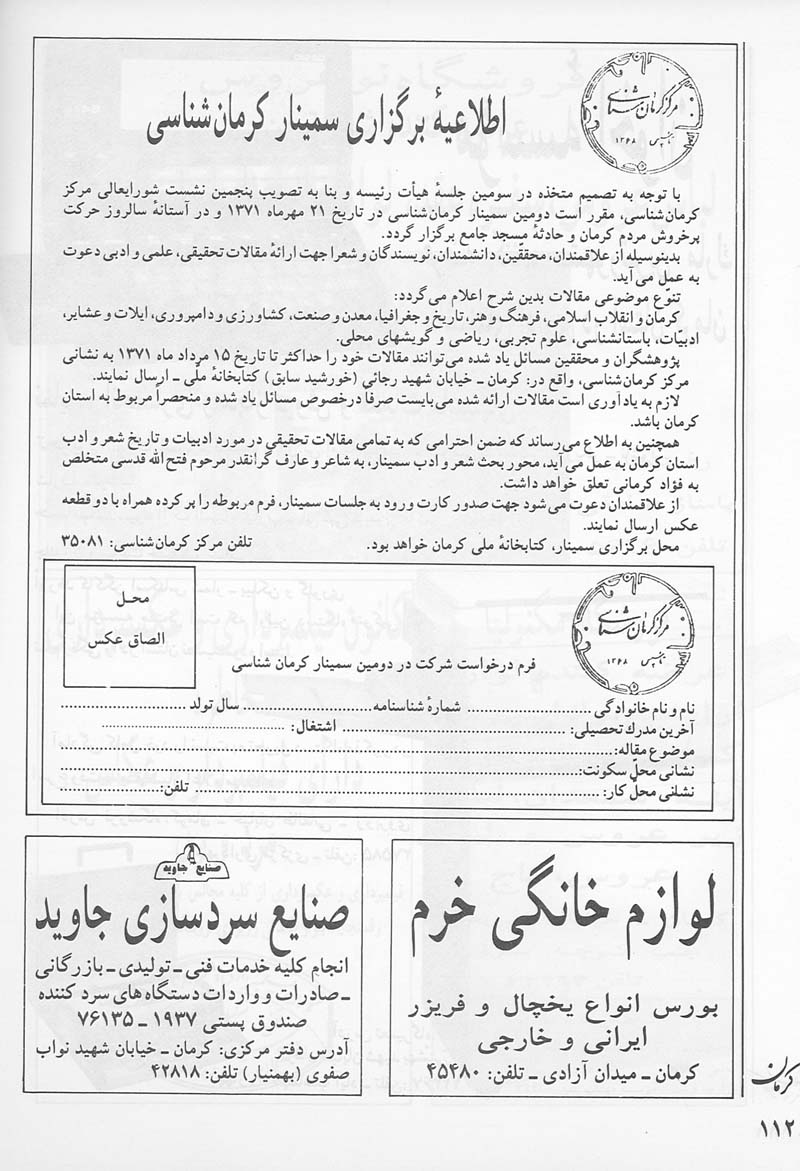 مرکز کرمان شناسی
تأسیس ۱۳۶۸
اطلاعیهٔ برگزاری سمینار کرمان‌شناسی
با توجه به تصمیم متخذه در سومین جلسهٔ هیأت رئیسه و بنا به تصویب پنجمین نشست شورایعالی مرکز
کرمان‌شناسی، مقرر است دومین سمینار کرمان‌شناسی در تاریخ ۲۱ مهرماه ۱۳۷۱ و در آستانهٔ سالروز حرکت
پرخروش مردم کرمان و حادثهٔ مسجد جامع برگزار گردد.
بدینوسیله از علاقمندان، محققّین، دانشمندان، نویسندگان و شعرا جهت ارائهٔ مقالات تحقیقی، علمی و ادبی دعوت
به عمل می‌آید.
تنوّع موضوعی مقالات بدین شرح اعلام می‌گردد:
کرمان و انقلاب اسلامی، فرهنگ و هنر، تاریخ و جغرافیا، معدن و صنعت، کشاورزی و دامپروری، ایلات و عشایر،
ادبیّات، باستانشناسی، علوم تجربی، ریاضی و گویشهای محلی.
پژوهشگران و محققین مسائل یاد شده می‌توانند مقالات خود را حداکثر تا تاریخ ۱۵ مرداد ماه ۱۳۷۱ به نشانی
مرکز کرمان‌شناسی، واقع در: کرمان ـ خیابان شهید رجائی (خورشید سابق) کتابخانهٔ ملّی ـ ارسال نمایند.
لازم به یادآوری است مقالات ارائه شده می‌بایست صرفاً درخصوص مسائل یاد شده و منحصراً مربوط به استان
کرمان باشد.
همچنین به اطلاع می‌رساند که ضمن احترامی که به تمامی مقالات تحقیقی در مورد ادبیات و تاریخ شعر و ادب
استان کرمان به عمل می‌آید، محور بحث شعر و ادب سمینار، به شاعر و عارف گرانقدر مرحوم فتح‌الله قدسی متخلص
به فؤاد کرمانی تعلق خواهد داشت.
از علاقمندان دعوت می‌شود جهت صدور کارت ورود به جلسات سمینار، فرم مربوطه را پر کرده همراه با دو قطعه
عکس ارسال نمایند.
محل برگزاری سمینار، کتابخانهٔ ملی کرمان خواهد بود. تلفن مرکز کرمان‌شناسی: ۳۵۰۸۱
مرکز کرمان شناسی
تأسیس ۱۳۶۸
محـل
الصاق عکس
فرم درخواست شرکت در دومین سمینار کرمان شناسی
نام و نام خانوادگی ........................ شمارهٔ شناسنامه ........................ سال تولد ........................
آخرین مدرك تحصیلی: ........................ اشتغال: ........................
موضوع مقاله: ........................
نشانی محلّ سکونت: ........................
نشلنی محلّ کار: ........................ تلفن: ........................
لوازم خانگی خرم
بورس انواع یخچال و فریزر
ایرانی و خارجی
کرمان ـ میدان آزادی ـ تلفن: ۴۵۴۸۰
صنایع جاوید
صنایع سردسازی جاوید
انجام کلیه خدمات فنی ـ تولیدی ـ بازرگانی
ـ صادرات و واردات دستگاه‌های سرد کننده
صندوق پستی ۱۹۳۷ ـ ۷۶۱۳۵
آدرس دفتر مرکزی: کرمان ـ خیابان شهید نواب
صفوی (بهمنیار) تلفن: ۴۲۸۱۸
کرمان
۱۱۲